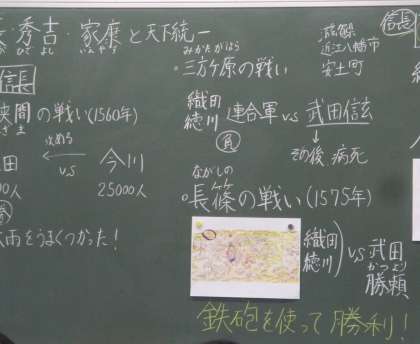 秀吉・家康と天下統一
ひでよし いえやす
信長
狭間の戦い(1560年)
ざま
攻める
田 ← 今川
vs
00人 25000人
大雨をうまくつかった！
みかたがはら
・三方ヶ原の戦い
織田
徳川 連合軍 vs 武田信玄
負
↓
その後 病死
ながしの
・長篠の戦い(1575年)
織田
徳川 vs 武田
かつより
勝頼
鉄砲を使って勝利！
滋賀県
近江八幡市
安土町
信長